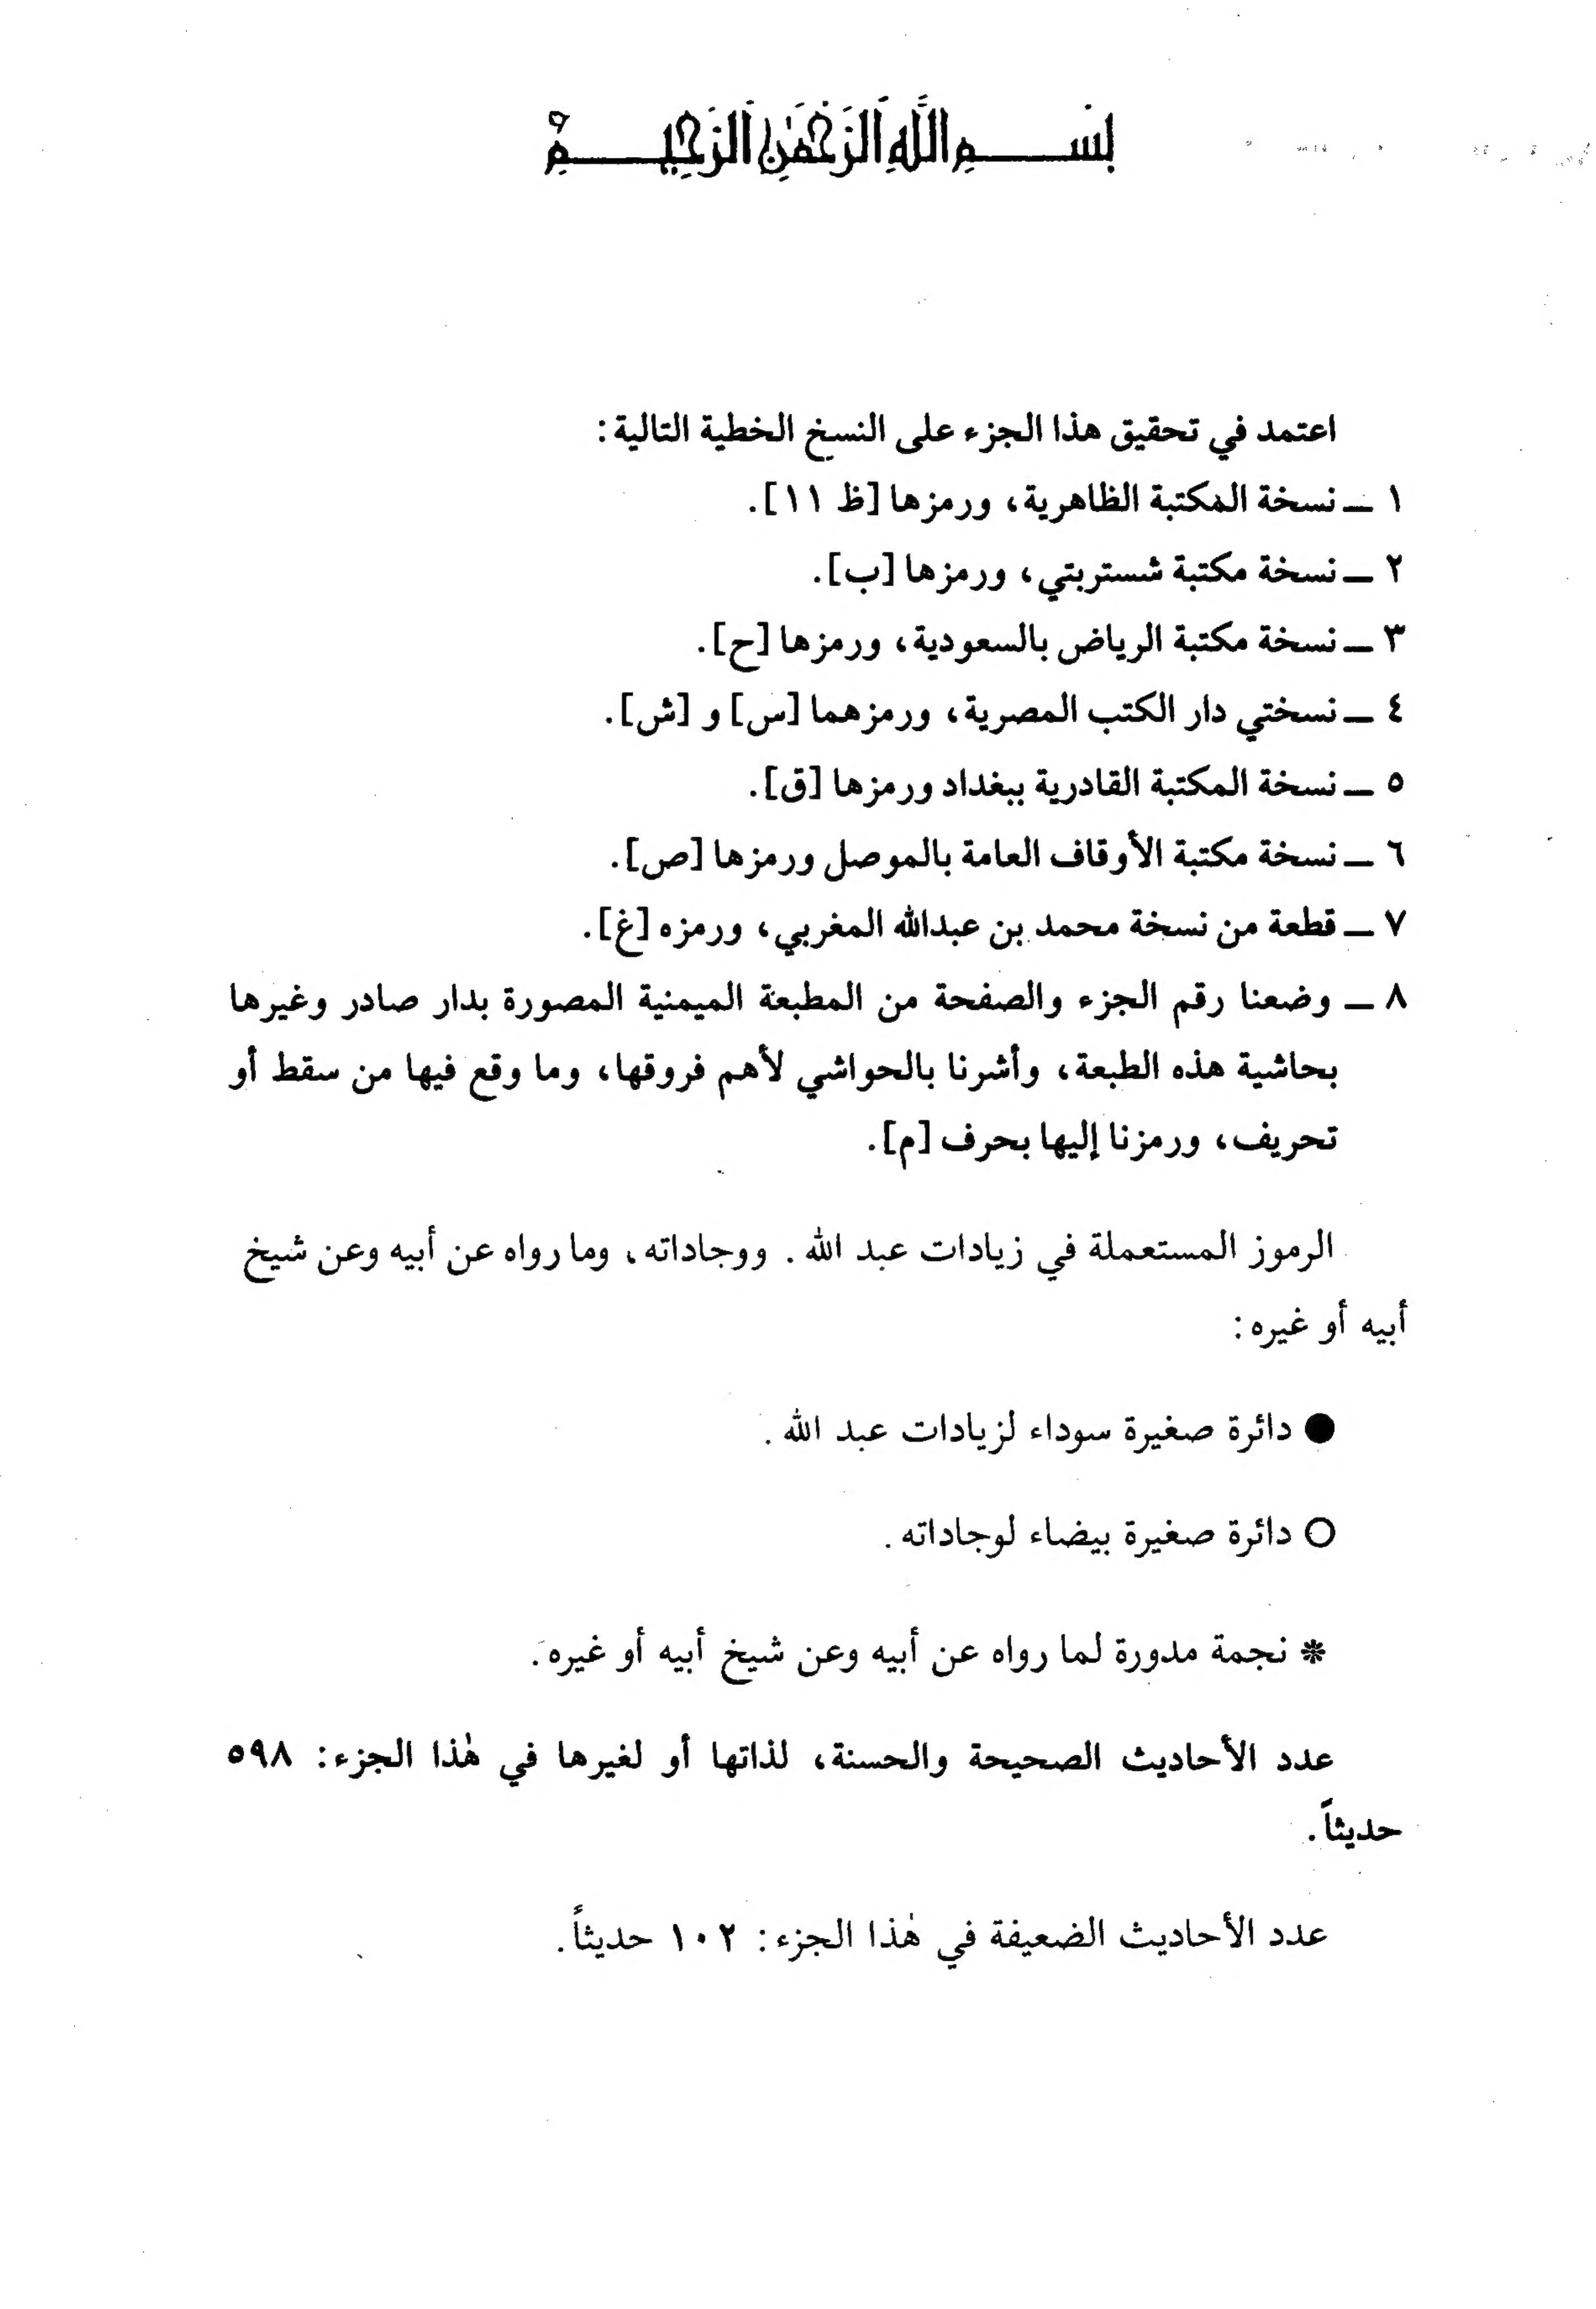 بسم الله الرحمن الرحيم
اعتمد في تحقيق هذا الجزء على النسخ الخطية التالية:
١ ـ نسخة المكتبة الظاهرية، ورمزها [ظ ١١].
٢ ـ نسخة مكتبة شستربتي، ورمزها [ب].
٣ ـ نسخة مكتبة الرياض بالسعودية، ورمزها [ح].
٤ ـ نسختي دار الكتب المصرية، ورمزهما [س] و [ش].
٥ ـ نسخة المكتبة القادرية ببغداد ورمزها [ق].
٦ ـ نسخة مكتبة الأوقاف العامة بالموصل ورمزها [ص].
٧ ـ قطعة من نسخة محمد بن عبدالله المغربي، ورمزه [غ].
٨ ـ وضعنا رقم الجزء والصفحة من المطبعة الميمنية المصورة بدار صادر وغيرها
بحاشية هذه الطبعة، وأشرنا بالحواشي لأهم فروقها، وما وقع فيها من سقط أو
تحريف، ورمزنا إليها بحرف [م].
الرموز المستعملة في زيادات عبد الله. ووجاداته، وما رواه عن أبيه وعن شيخ
أبيه أو غيره:
● دائرة صغيرة سوداء لزيادات عبد الله.
○ دائرة صغيرة بيضاء لوجاداته.
* نجمة مدورة لما رواه عن أبيه وعن شيخ أبيه أو غيره.
عدد الأحاديث الصحيحة والحسنة، لذاتها أو لغيرها في هٰذا الجزء: ٥٩٨
حديثاً.
عدد الأحاديث الضعيفة في هٰذا الجزء: ١٠٢ حديثاً.